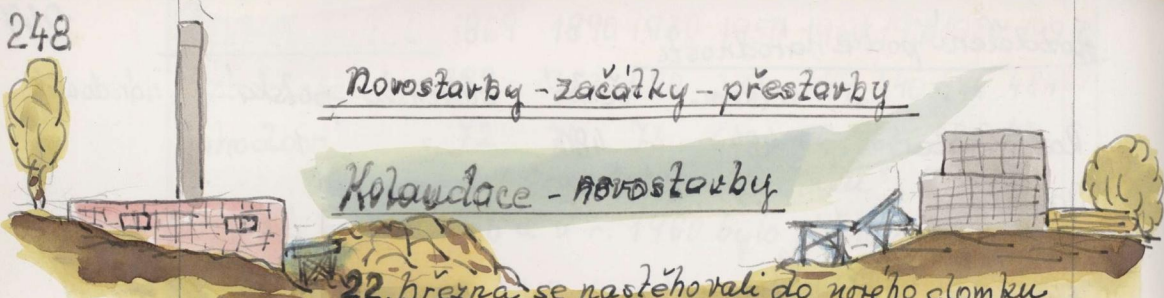 248
Novostavby - začátky - přestavby
Kolaudace - novostavby
22. března se nastěhovali do nového domku